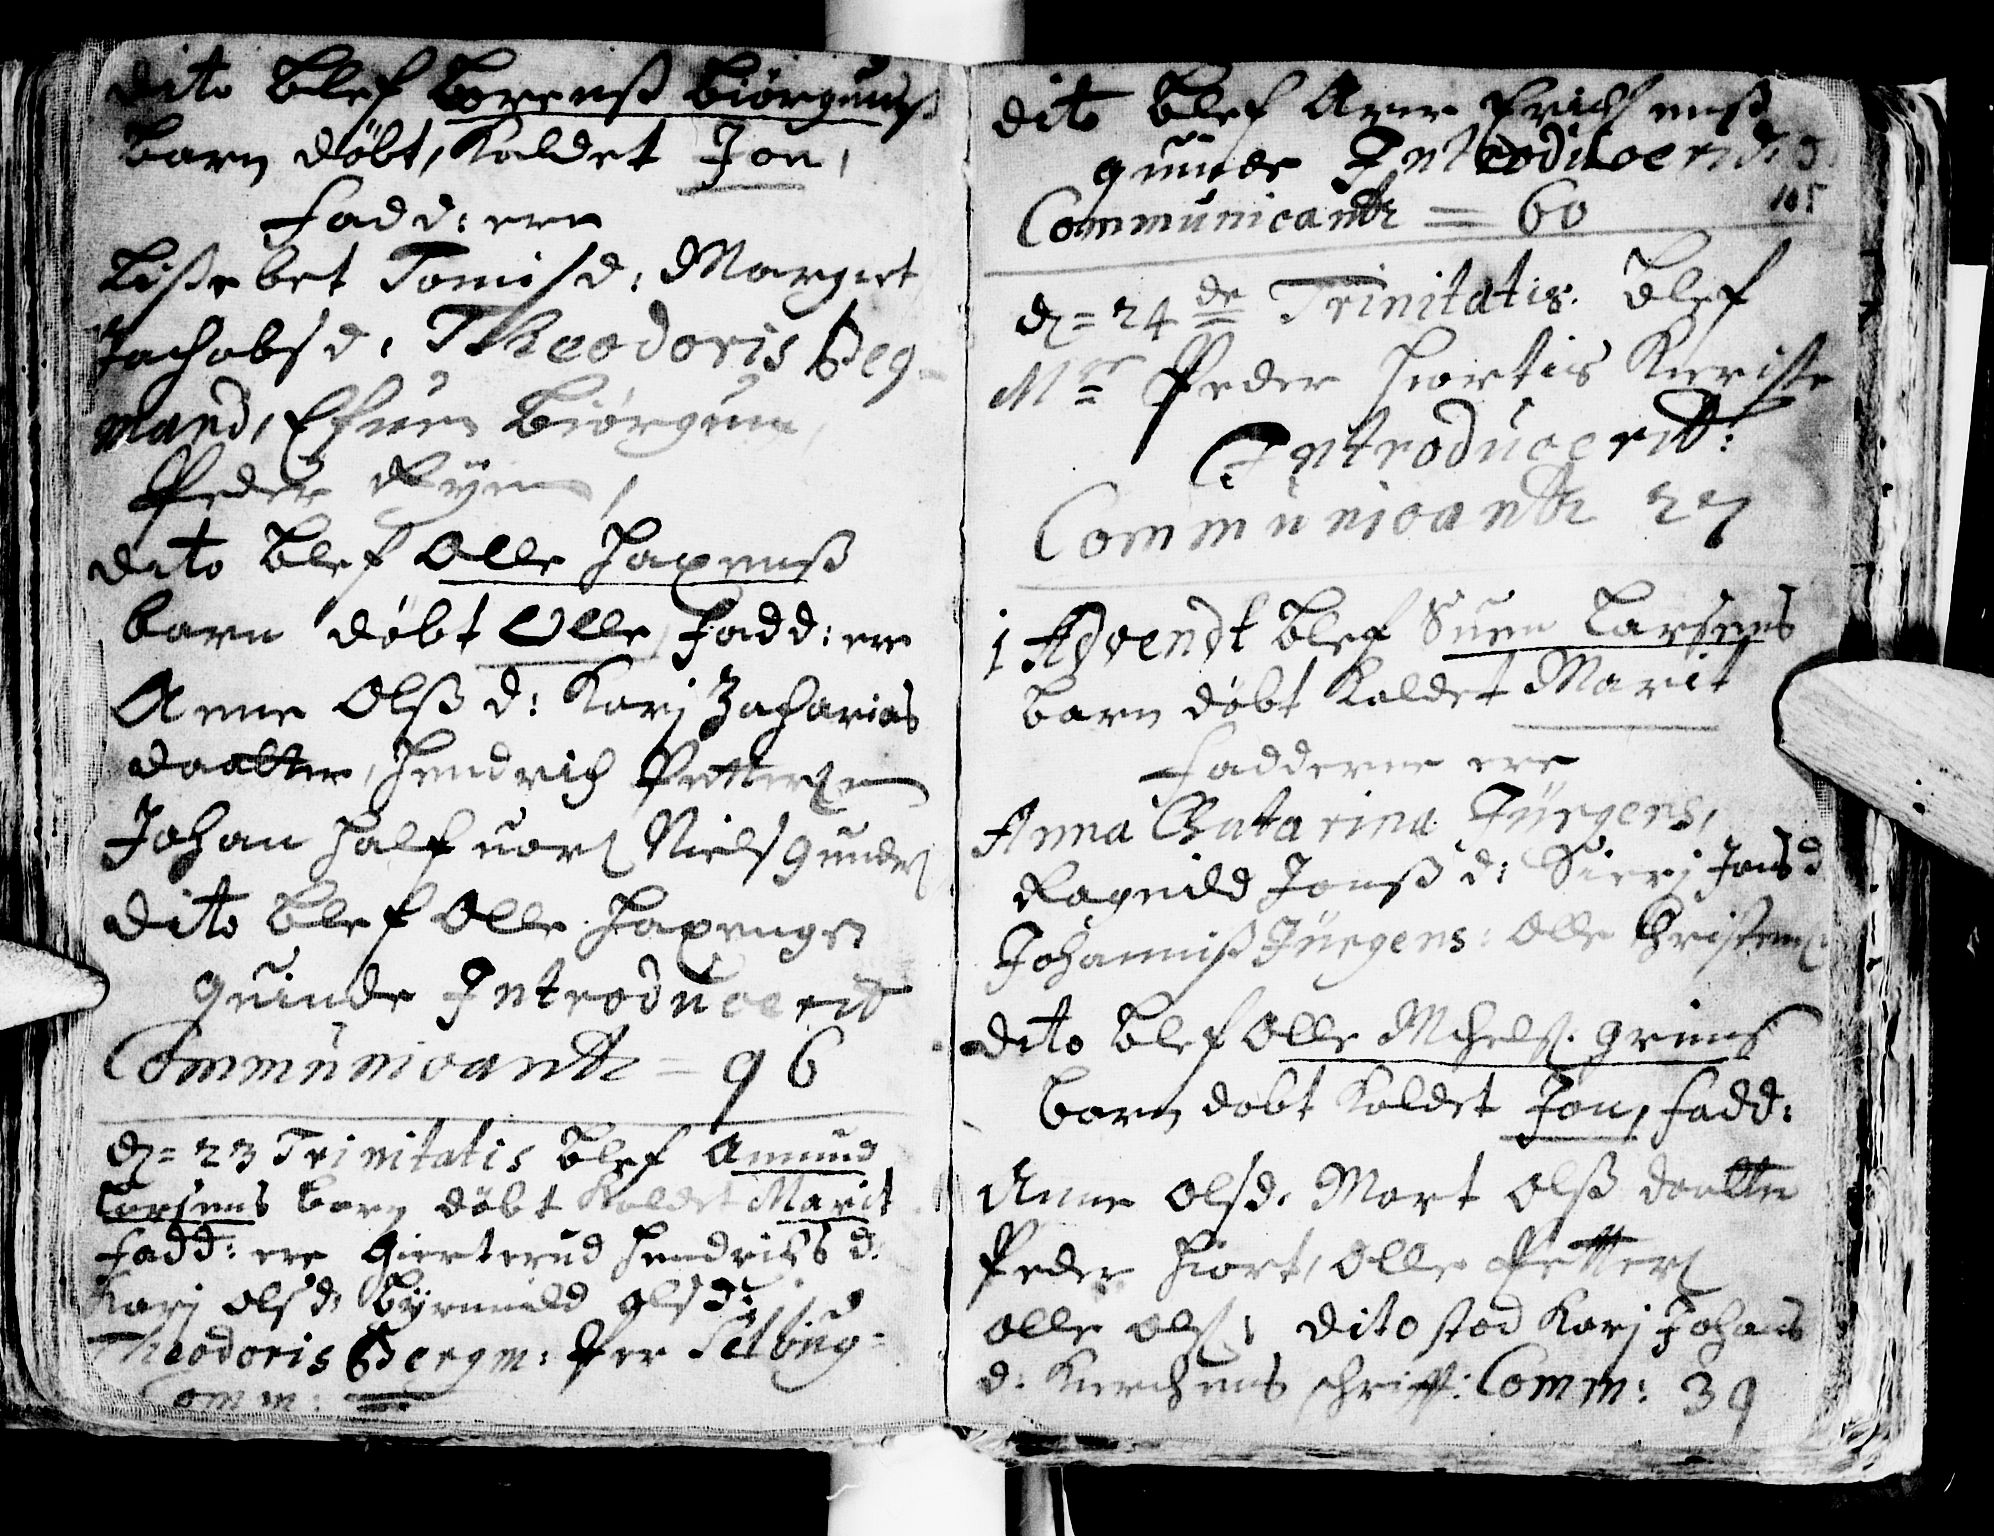 dito blef Børenß Biörguns
barn döbt, Kaldet Jon,
Fadd: ere
Lissebet Tomisd: Margret
Jachobsd: Theodoris Beg-
mand, Efven Biörgum,
Peder Ryen,
dito blef Olle Haxenß
barn döbt Olle, Fadd: ere
Anne Olß d: Karj Zacharias
daatter, Hendrich Pettersen
Johan Halfuors Niels Gunders
Dito blef Olle Haxenges
quinde Introducerit
Communicantr = 96
D = 23 Trinitatis blef Amund
Larsens barn döbt Kaldet Marit
Fadd: ere Gierterud Hendriksd:
Karj olsd: Byrnild olsd:
Theodoris Bergm: Per Selbug-
Comm:
dito blef Arne Erichsenß
quinde Introducerid:
Communicantr = 60
105
D = 24 de Trinitatis. blef
Mr Peder Hiortis Kieriste
Introducerit:
Communicantr 27
1 Advendt blef Suen Larsens
barn döbt Kaldet Marit
Fadderne ere
Anna Catarina Jürgens,
Ragnild Jonß d: Sirj Jonsd
Johanniß Jürgens: Olle Christens
dito blef Olle Mchels. Griins
barn dobt Kaldet Jon, Fadd:
Anne olsd. Mart Olß daatter
Peder Hiort, Olle Petters
olle ols: dito stod Karj Johans
d: Kirchens schrifft: Comm: 39